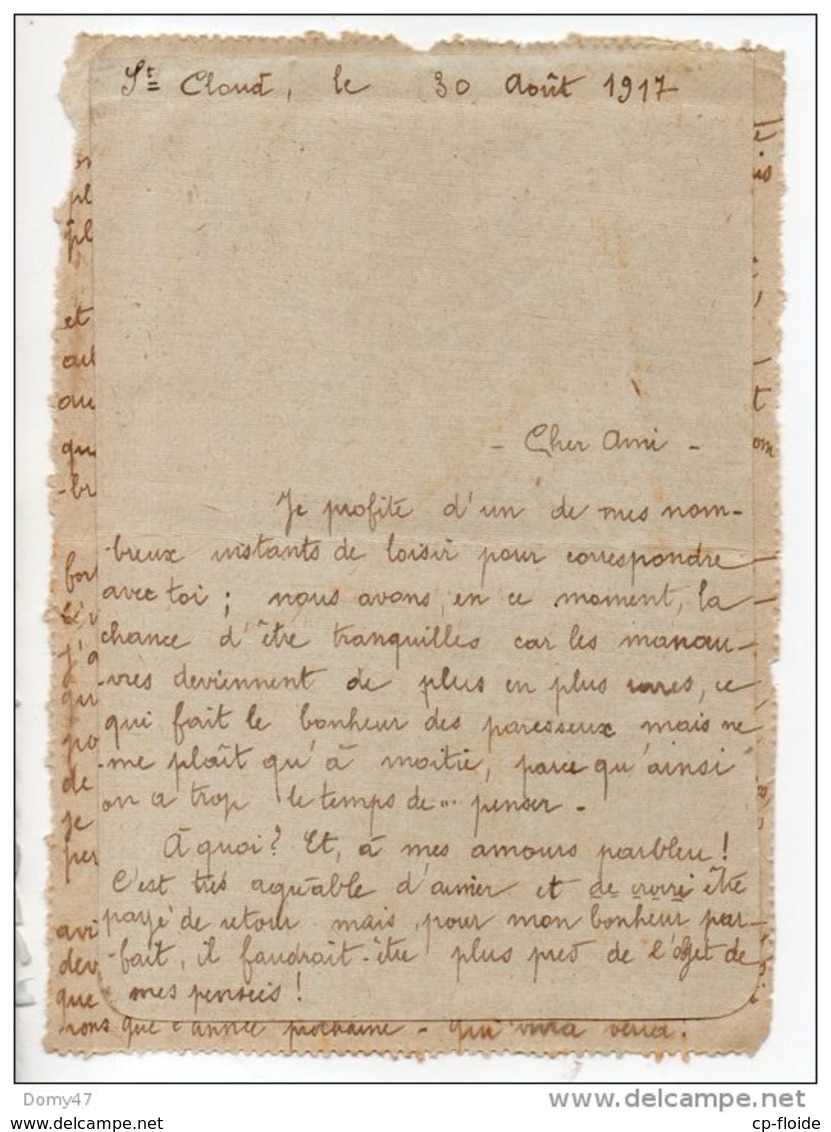 St Cloud, le 30 Août 1917
- Cher Ami -
Je profite d'un de mes nom-
-breux instants de loisir pour correspondre
avec toi ; nous avons, en ce moment, la
chance d'être tranquilles car les manœu-
-vres deviennent de plus en plus rares, ce
qui fait le bonheur des paresseux mais ne
-me plaît qu'à moitié, parce qu'ainsi
on a trop le temps de... penser -
À quoi? Et, à mes amours parbleu!
C'est très agréable d'aimer et de croire être
payé de retour mais, pour mon bonheur par-
-fait, il faudrait être plus près de l'objet de
mes pensées!
-rons que l'année prochaine - qui vivra verra!
et
au
qu
-br
qu
po
de
je
per
avi
dev
que
Domy47
www.delcampe.net
www.delcampe.net
cp-floide